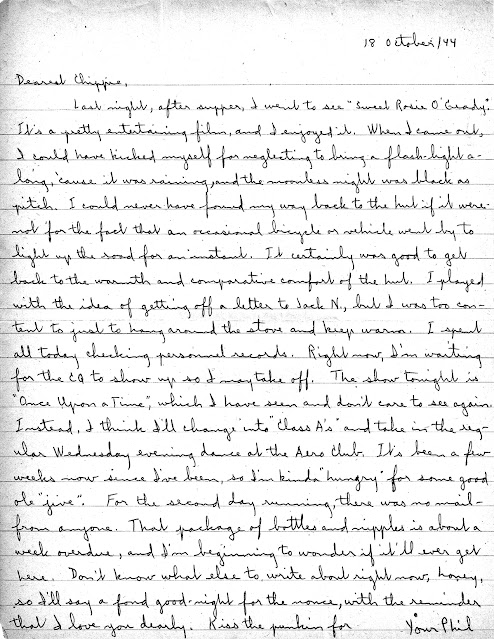 18 October/44
Dearest Chippie,
Last night, after supper, I went to see "Sweet Rosie O'Grady".
It's a pretty entertaining film, and I enjoyed it. When I came out,
I could have kicked myself for neglecting to bring a flash-light a-
long, 'cause it was raining, and the moonless night was black as
pitch. I could never have found my way back to the hut if it were
not for the fact that an occasional bicycle or vehicle went by to
light up the road for an instant. It certainly was good to get
back to the warmth and comparative comfort of the hut. I played
with the idea of getting off a letter to Jack N., but I was too con-
tent to just to hang around the stove and keep warm. I spent
all today checking personnel records. Right now, I'm waiting
for the CQ to show up so I may take off. The show tonight is
"Once Upon a Time", which I have seen and don't care to see again.
Instead, I think I'll change into "Class A's" and take in the reg-
ular Wednesday evening dance at the Aero Club. It's been a few
weeks now since I've been, so I'm kinda "hungry" for some good
ole "jive". For the second day running, there was no mail-
from anyone. That package of bottles and nipples is about a
week overdue, and I'm beginning to wonder if it'll ever get
here. Don't know what else to write about right now, honey,
so I'll say a fond good-night for the nonce, with the reminder
that I love you dearly. Kiss the punkin for Your Phil